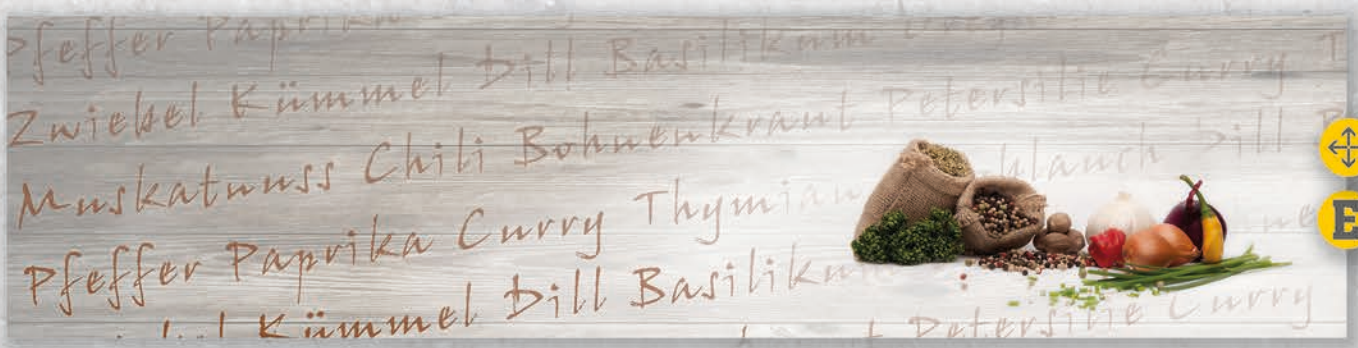 Pfeffer Paprika
Zwiebel Kümmel Dill Basilikum
Muskatnuss Chili Bohnenkraut Petersilie Curry T
Pfeffer Paprika Curry Thymian Dill
Kümmel Dill Basilikum
Petersilie Curry
E